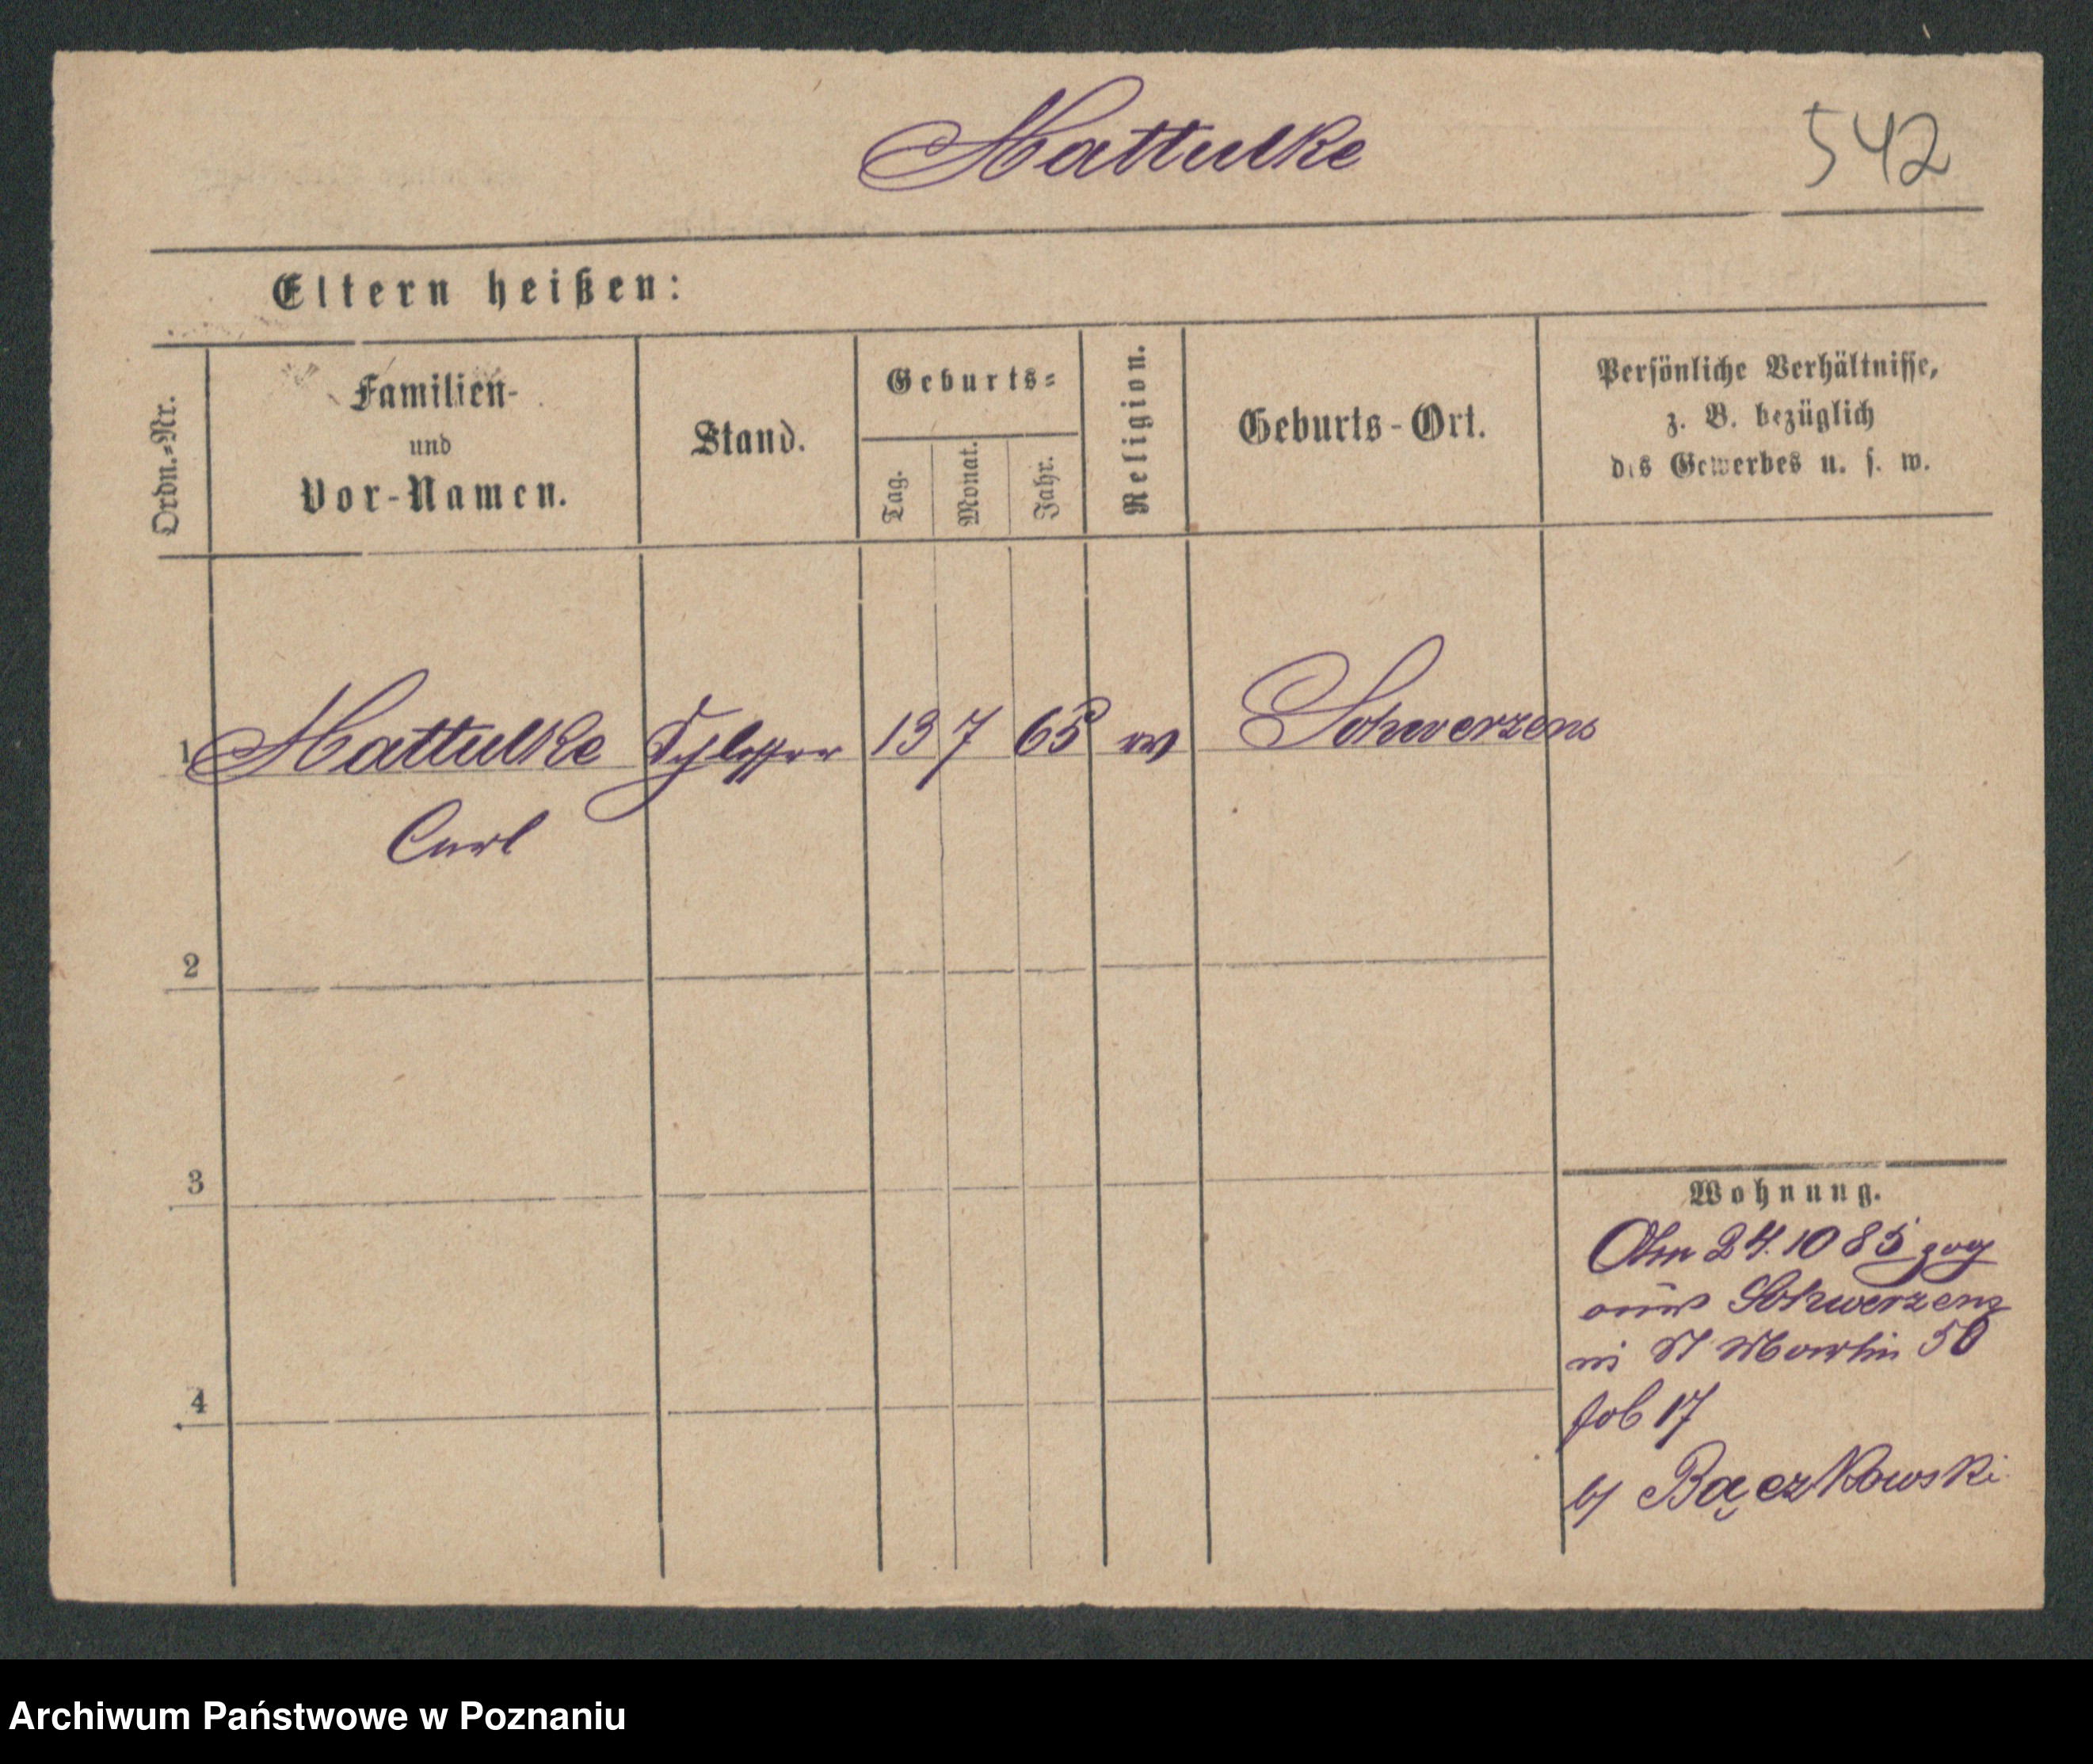 Mattulke
542
Eltern heißen:
Ordn.=Nr.
Familien-
und
Vor-Namen.
Stand.
Geburts=
Tag.
Monat.
Jahr.
Religion.
Geburts-Ort.
Persönliche Verhältnisse,
z. B. bezüglich
des Gewerbes u. s. w.
1 Mattulke Schlosser 13 7 65 Schwersenz
Carl
2
3
4
Wohnung.
Am 24.10 85 zog
aus Schwersenz
St Martin 50
17
b/ Bączkowski
Archiwum Państwowe w Poznaniu